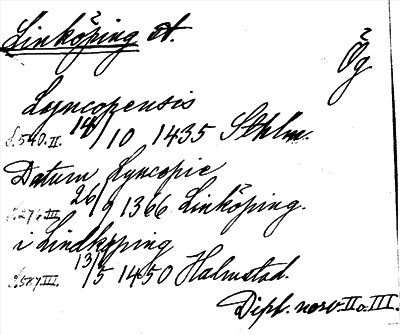 Linköping st.
Ög
Lyncopensis
S.540.II. 14/10 1435 Sthlm.
Datum Lyncopie
26/9 1366 Linköping.
i Lindköping
S.587.III. 13/5 1450 Halmstad.
Dipl. norv. II o. III.